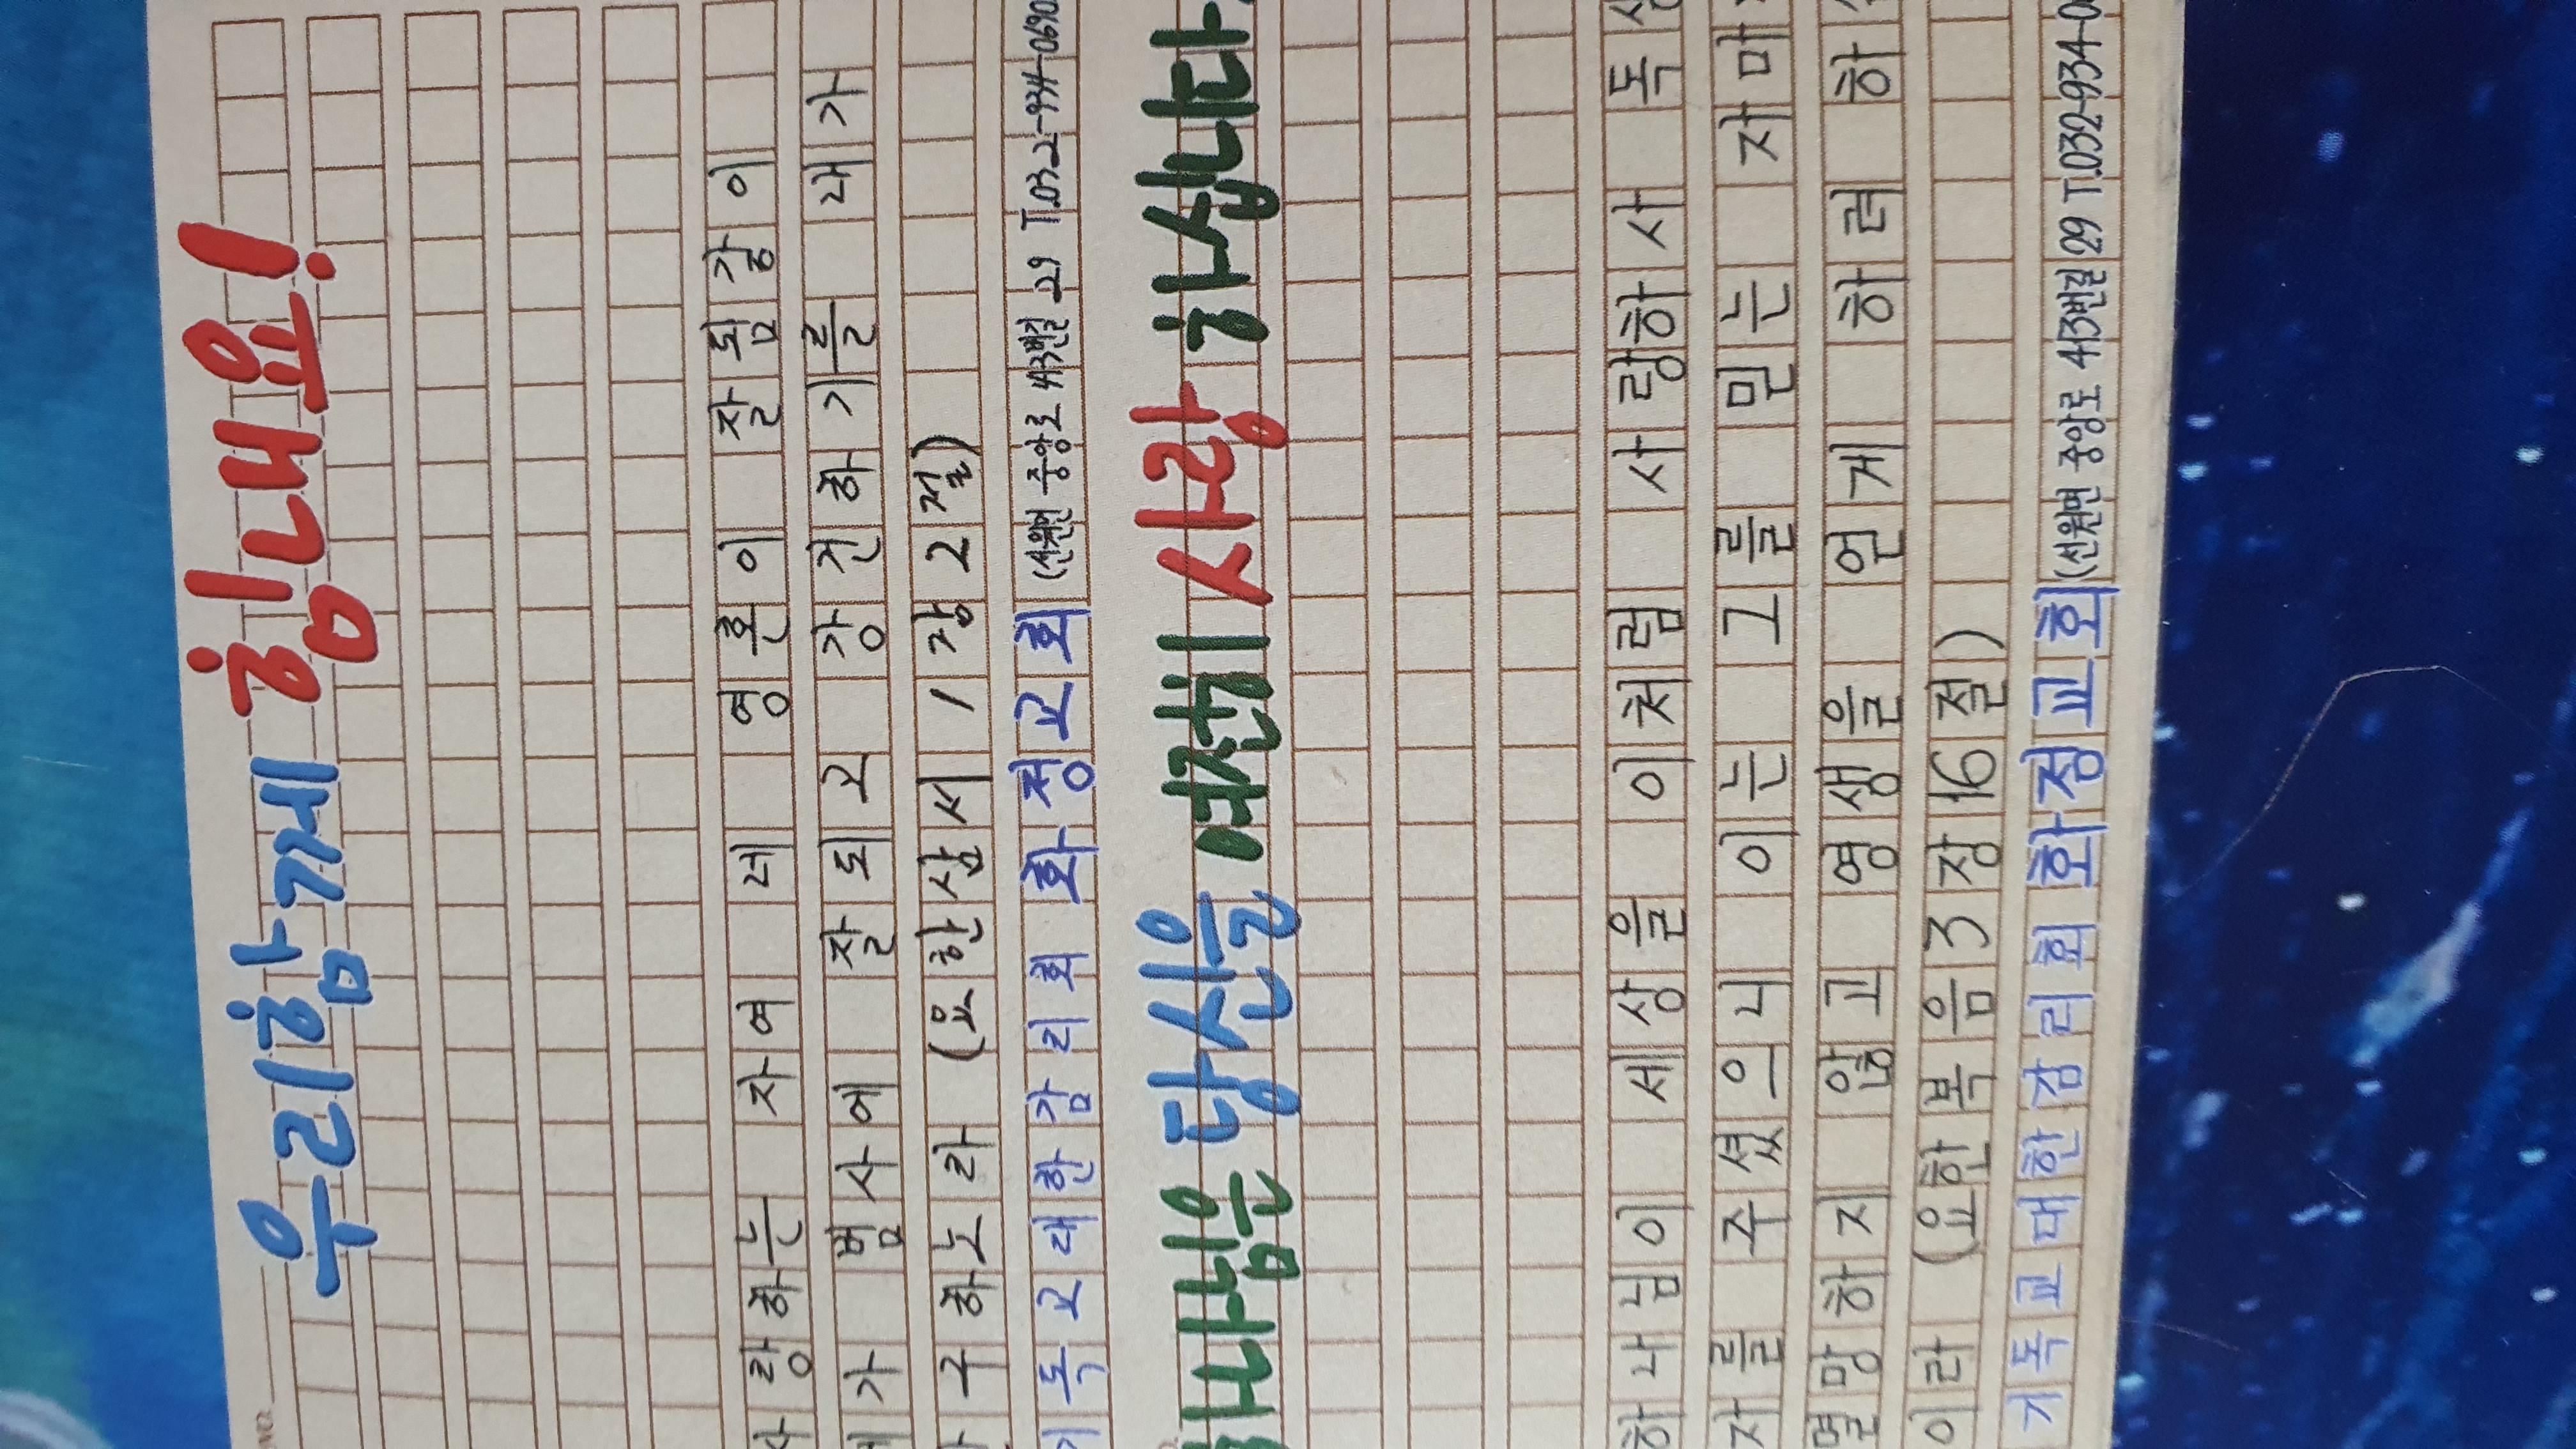 우리 함께 힘내요!
사랑하는 자여 네 영혼이 잘됨같이
네가 범사에 잘되고 강건하기를 내가
간구하노라 (요한삼서 1장2절)
기독교대한감리회 화정교회 (선원면 중앙로 43번길 29 T.032-934-0690
하나님은 당신을 여전히 사랑 하십니다.
하나님이 세상을 이처럼 사랑하사 독생
자를 주셨으니 이는 그를 믿는 자마다
멸망하지 않고 영생을 얻게 하려 하심
이라 (요한복음3장16절)
기독교대한감리회 화정교회 (선원면 중앙로 43번길 29 T.032-934-0